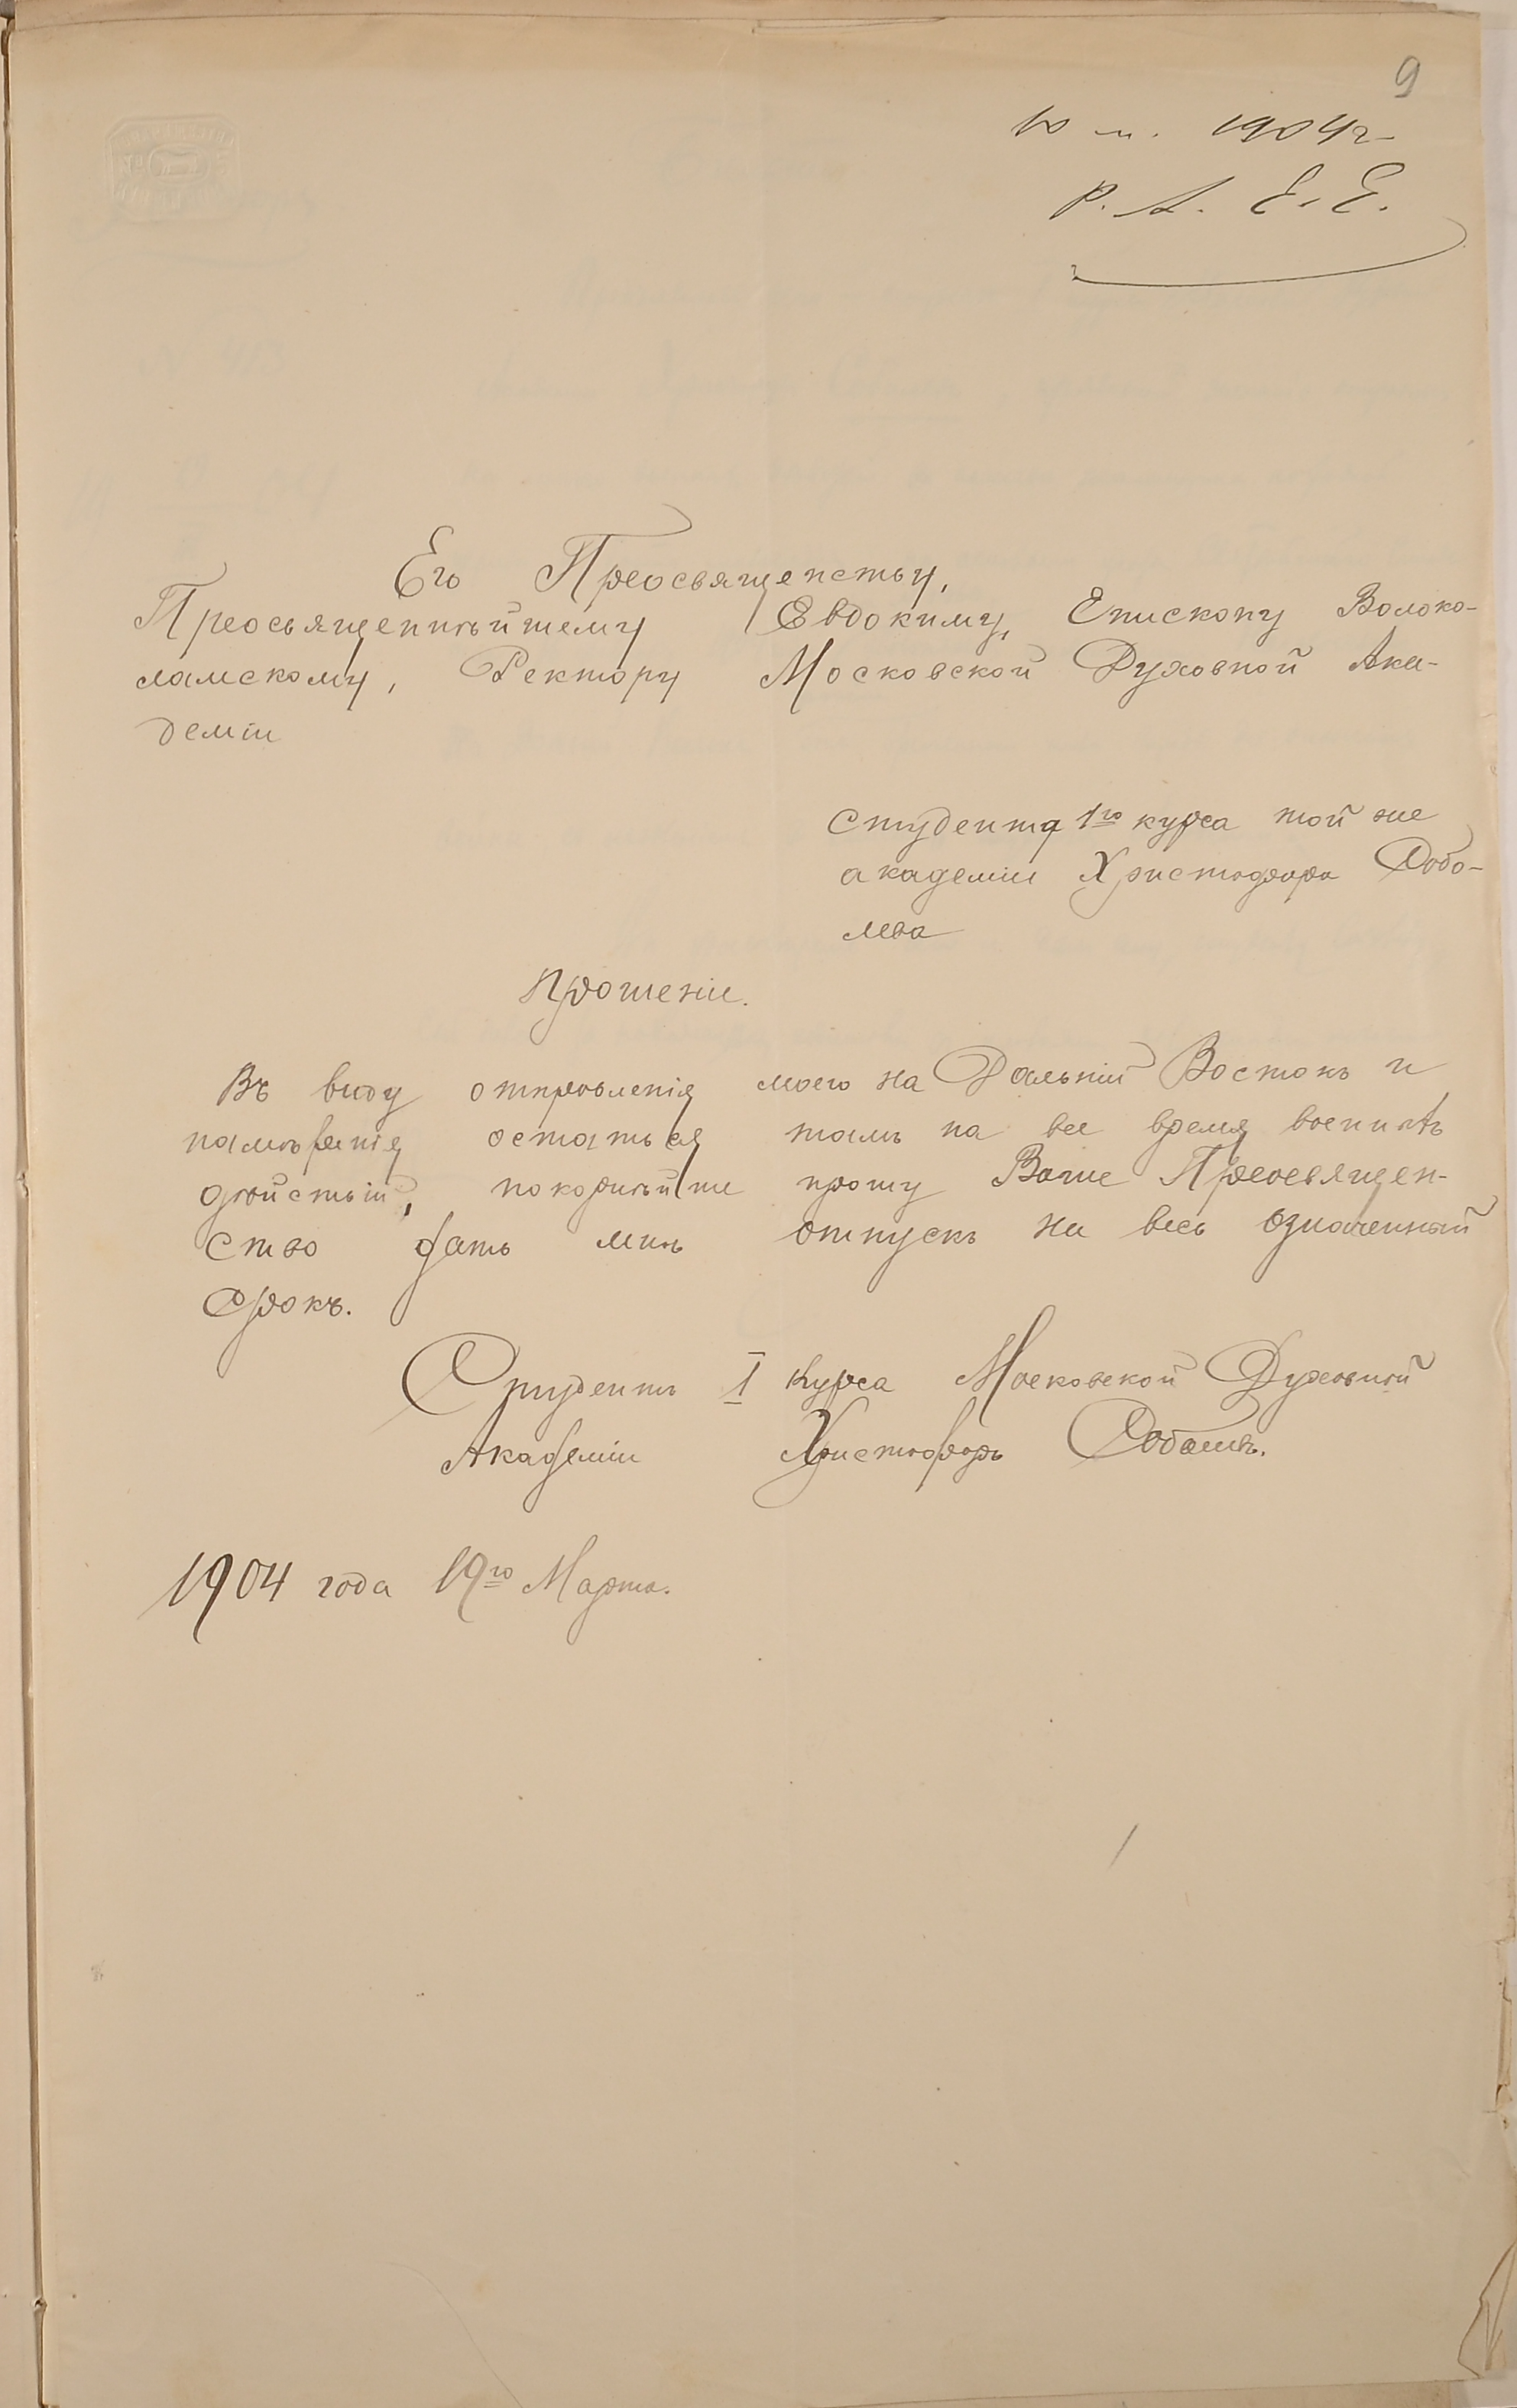 9
10 м. 1904 г.
Р. А. Е. Е.
Его Преосвященству,
Преосвященнѣйшему Евдокиму, Епискому Волоко-
ламскому, Ректору Московской Духовной Ака-
деміи
студента 1го курса той же
академіи Христофора
Прошеніе.
Въ виду отправленія моего на Дальній Востокъ и
намѣренія остаться тамъ на все время военныхъ
дѣйствій, покорнѣйше прошу Ваше Преосвящен-
ство дать мнѣ отпускъ на весь означенный
срокъ.
Студентъ I курса Московской Духовной
Академіи Христофоръ
1904 года 19го Марта.